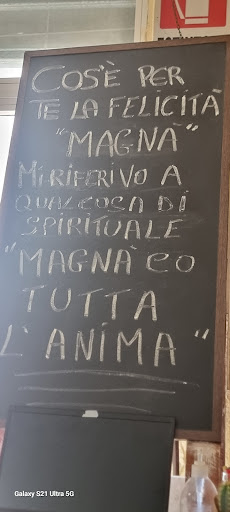 COS'È PER
TE LA FELICITÀ
"MAGNÀ"
MI RIFERIVO A
QUALCOSA DI
SPIRITUALE
"MAGNÀ CO
TUTTA
L'ANIMA"
Galaxy S21 Ultra 5G